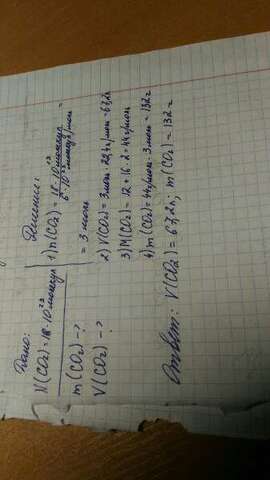 Дано:
N(CO₂) = 18 · 10²³ молекул
m(CO₂) - ?
V(CO₂) - ?
Решение:
1) n(CO₂) = 18 · 10²³ молекул / 6 · 10²³ молекул/моль =
= 3 моль
2) V(CO₂) = 3 моль · 22,4 л/моль = 67,2 л
3) M(CO₂) = 12 + 16 · 2 = 44 г/моль
4) m(CO₂) = 44 г/моль · 3 моль = 132 г
Ответ: V(CO₂) = 67,2 л; m(CO₂) = 132 г